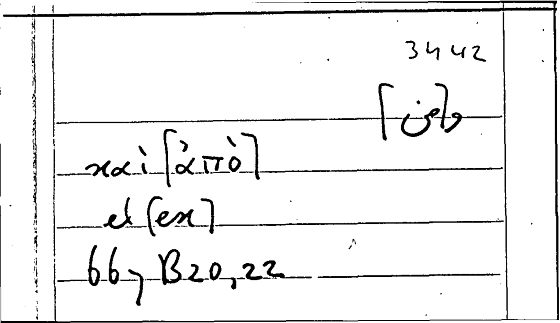 3442
و[من]
καὶ [ἀπὸ]
et [ex]
66, B20, 22